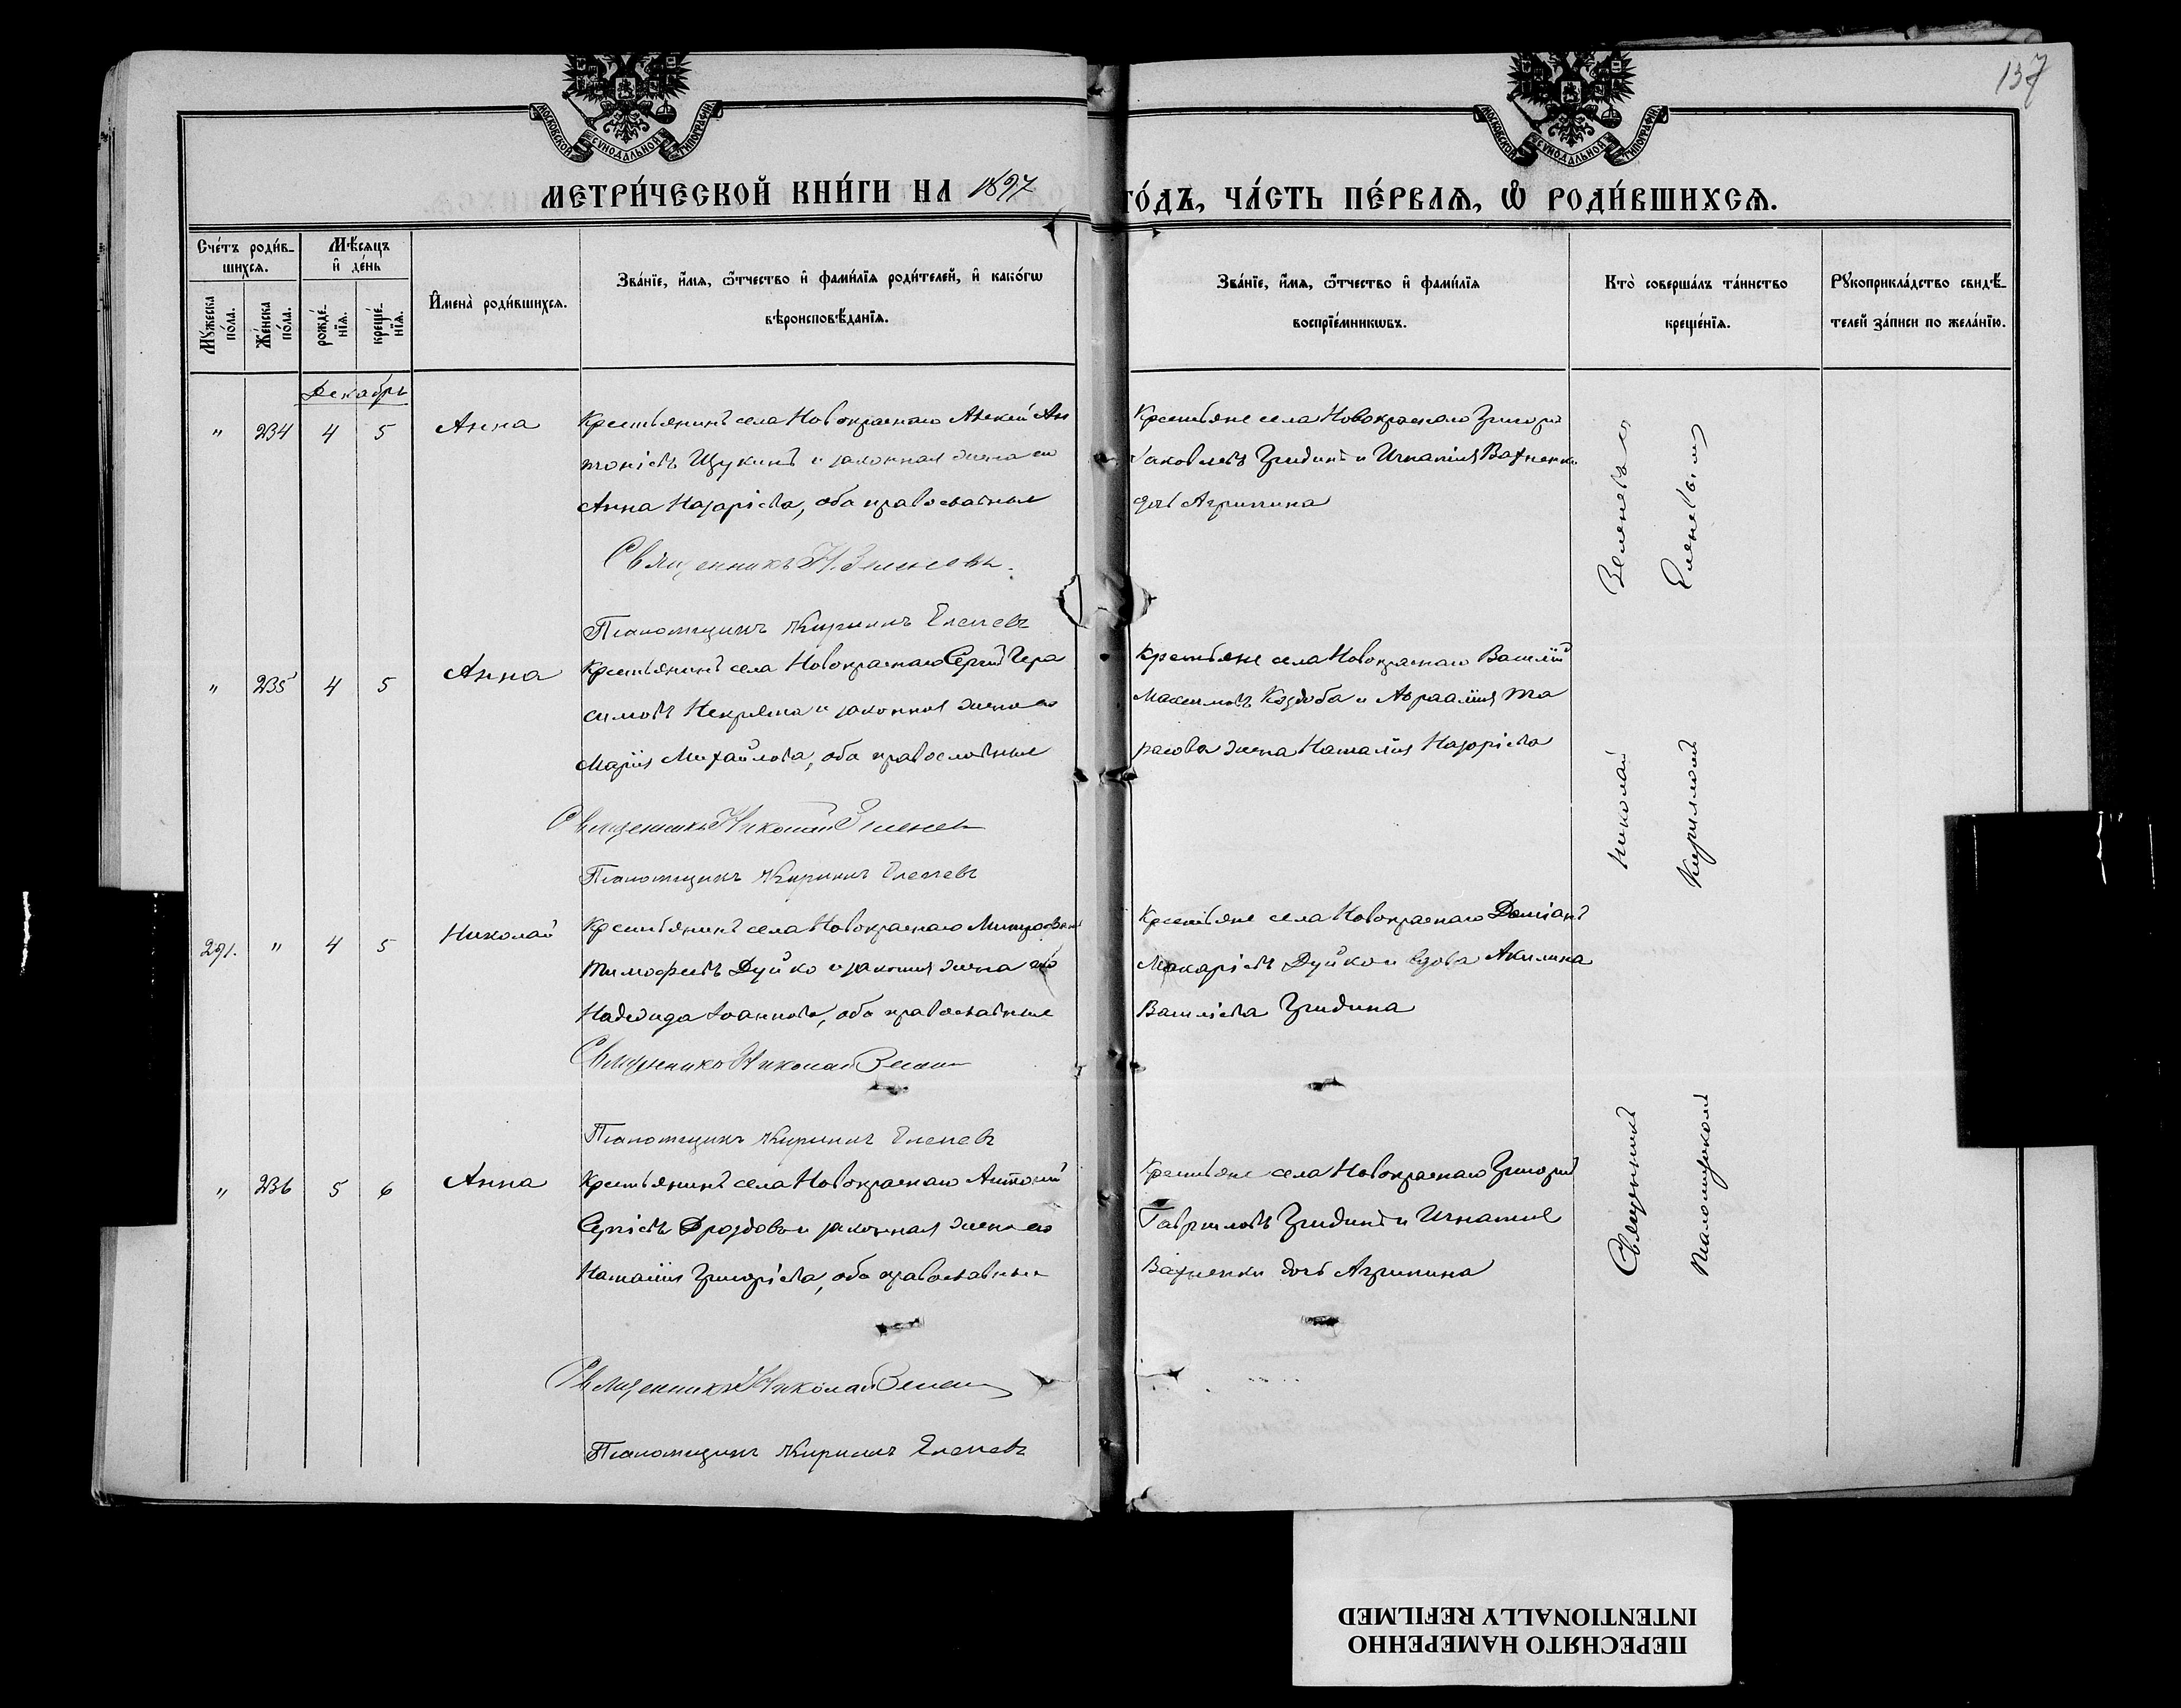 137
МОСКОВСКОЙ СѴНОДАЛЬНОЙ ТИПОГРАФІИ
МОСКОВСКОЙ СѴНОДАЛЬНОЙ ТИПОГРАФІИ
МЕТРИ́ЧЕСКОЙ КНИ́ГИ НА 1897 ГО́ДЪ, ЧА́СТЬ ПЕ́РВАѦ, Ѡ РОДИ́ВШИХСѦ.
Сче́тъ роди́в-
шихсѧ.
Мѣ́сѧцъ
и҆ де́нь
Мꙋ́жеска
по́ла.
Же́нска
по́ла.
рожде́-
нїѧ.
креще́-
нїѧ.
И҆мена̀ роди́вшихсѧ.
Зва́нїе, и҆́мѧ, ѻ҆́тчество и҆ фами́лїѧ роди́телей, и҆ како́гѡ
вѣроисповѣ́данїѧ.
Зва́нїе, и҆́мѧ, ѻ҆́тчество и҆ фами́лїѧ
воспрїе́мникѡвъ.
Кто̀ соверша́лъ та́инство
креще́нїѧ.
Рꙋкоприкла́дство свидѣ́-
телей за́писи по жела́нїю.
Декабрь
" 234 4 5 Анна
Крестьянинъ села Новокраснаго Алексій Ан
тоніевъ Щукинъ и законная жена его
Анна Назаріева, оба православные
Священникъ Н. Зеленевъ.
Псаломщикъ Кириллъ Еленевъ
Крестьяне села Новокраснаго Григорій
Іаковлевъ Гридинъ и Игнатія Вахненки
дочь Агрипина
" 235 4 5 Анна
Крестьянинъ села Новокраснаго Сергій Гера
симовъ Некряча и законная жена его
Марія Михайлова, оба православные
Священникъ Николай Зеленевъ
Псаломщикъ Кириллъ Еленевъ
Крестьяне села Новокраснаго Василій
Максимовъ Коздоба и Авраамія Та
расова жена Наталія Назаріева
291. " 4 5 Николай
Крестьянинъ села Новокраснаго Митрофанъ
Тимофеевъ Дуйко и законная жена его
Надежда Іоаннова, оба православные
Священникъ Николай Зеленевъ
Псаломщикъ Кириллъ Еленевъ
Крестьяне села Новокраснаго Даміанъ
Макаріевъ Дуйко и вдова Акилина
Василіева Гридина
" 236 5 6 Анна
Крестьянинъ села Новокраснаго Антоній
Сергіевъ Дроздовъ и законная жена его
Наталія Григоріева, оба православные
Священникъ Николай Зеленевъ
Псаломщикъ Кириллъ Еленевъ
Крестьяне села Новокраснаго Григорій
Гавриловъ Гридинъ и Игнатія
Вахненки дочь Агрипина
Священникъ Николай Зеленевъ съ
Псаломщикомъ Кирилломъ Еленевымъ
ПЕРЕСНЯТО НАМЕРЕННО
INTENTIONALLY REFILMED